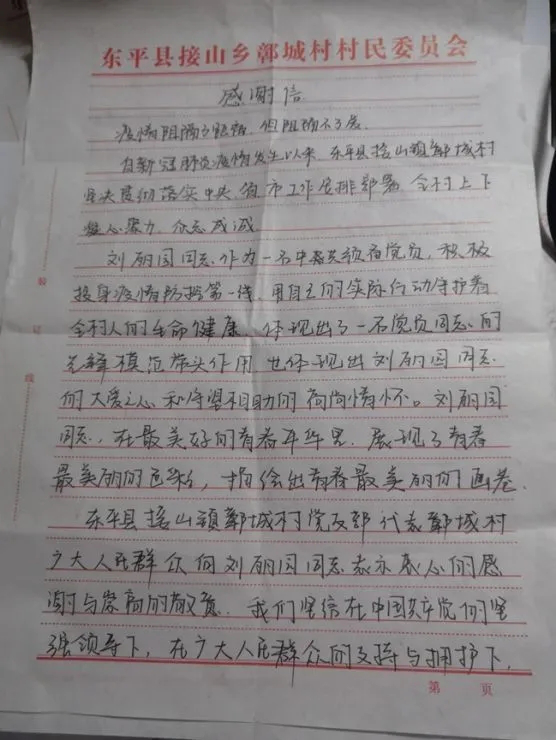 东平县接山乡鄣城村村民委员会
感谢信
疫情阻隔了距离，但阻隔不了爱。
自新冠肺炎疫情发生以来，东平县接山镇鄣城村
坚决贯彻落实中央、省、市工作安排部署，全村上下
凝心聚力，众志成城。
刘丽园同志作为一名中共预备党员，积极
投身疫情防控第一线，用自己的实际行动守护着
全村人的生命健康，体现出了一名党员同志的
先锋模范带头作用，也体现出刘丽园同志
的大爱之心和守望相助的高尚情怀。刘丽园
同志，在最美好的青春年华里，展现了青春
最美丽的色彩，描绘出青春最美丽的画卷。
东平县接山镇鄣城村党支部代表鄣城村
广大人民群众向刘丽园同志表示衷心的感
谢与崇高的敬意。我们坚信在中国共产党的坚
强领导下，在广大人民群众的支持与拥护下，
第 页
装
订
线